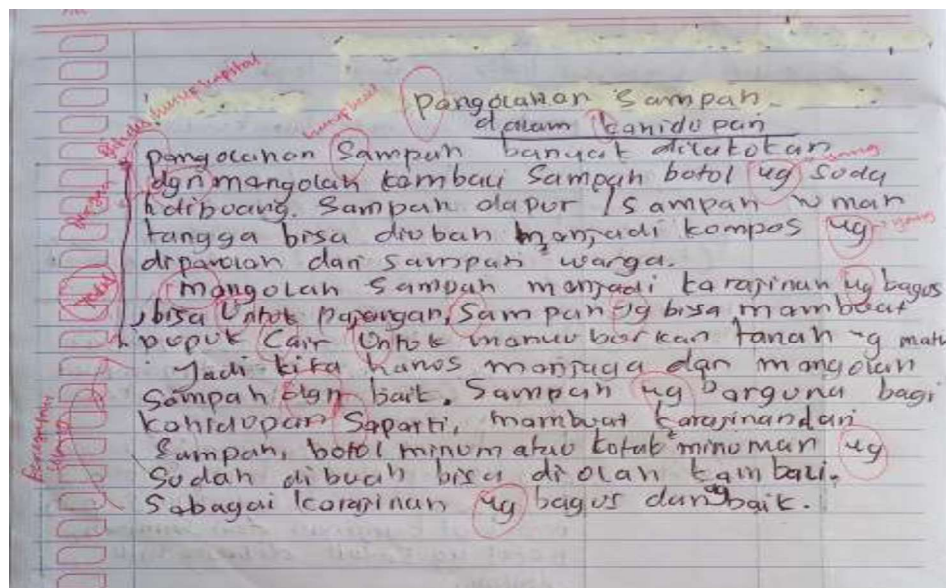 Pangolahan Sampah
dalam kahidupan
huruf kecil
pangolahan Sampah banyak dilakokan
dgn mangolah kambali Sampah botol yg suda yang
hdibuang. Sampah dapur / sampah uman
tangga bisa diubah manjadi kompos yg yang
diparolah dari sampah warga.
mangolah Sampah manjadi karajinan yg bagus
, bisa Untuk pajangan, Sampah yg bisa mambuat
pupuk Cair Untuk manuuborkan tanah yg mati
Jadi kita harus manjaga dan mangolah
Sampah dgn baik. Sampah yg barguna bagi
kahidupan Saparti, mambuat karajinan dari
Sampah, botol minum atau kotak² minuman yg
Sudah dibuah bisa diolah kambali.
Sabagai karajinan yg bagus dan yg baik.